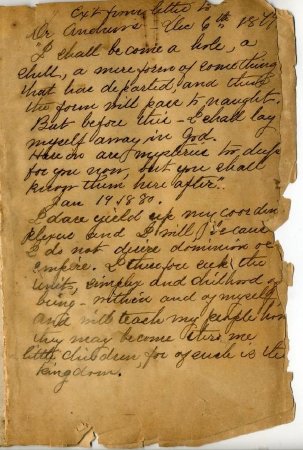 Ext from letter to
Dr Andrews Dec 6th 1879
"I shall become a hole, a
shell, a mere form of something
that has departed and then
the form will pass to naught.
But before this - I shall lay
myself away in God.
Herein are mysteries to deep
for you now, but you shall
know them here after".
Jan 19 1880.
I dare yield up my
and I will because
I do not desire dominion or
empire. I therefore seek the
unit, simply and childhood of
being - within and of myself
and will teach my people how
they may become like me
little children, for of such is the
Kingdom.